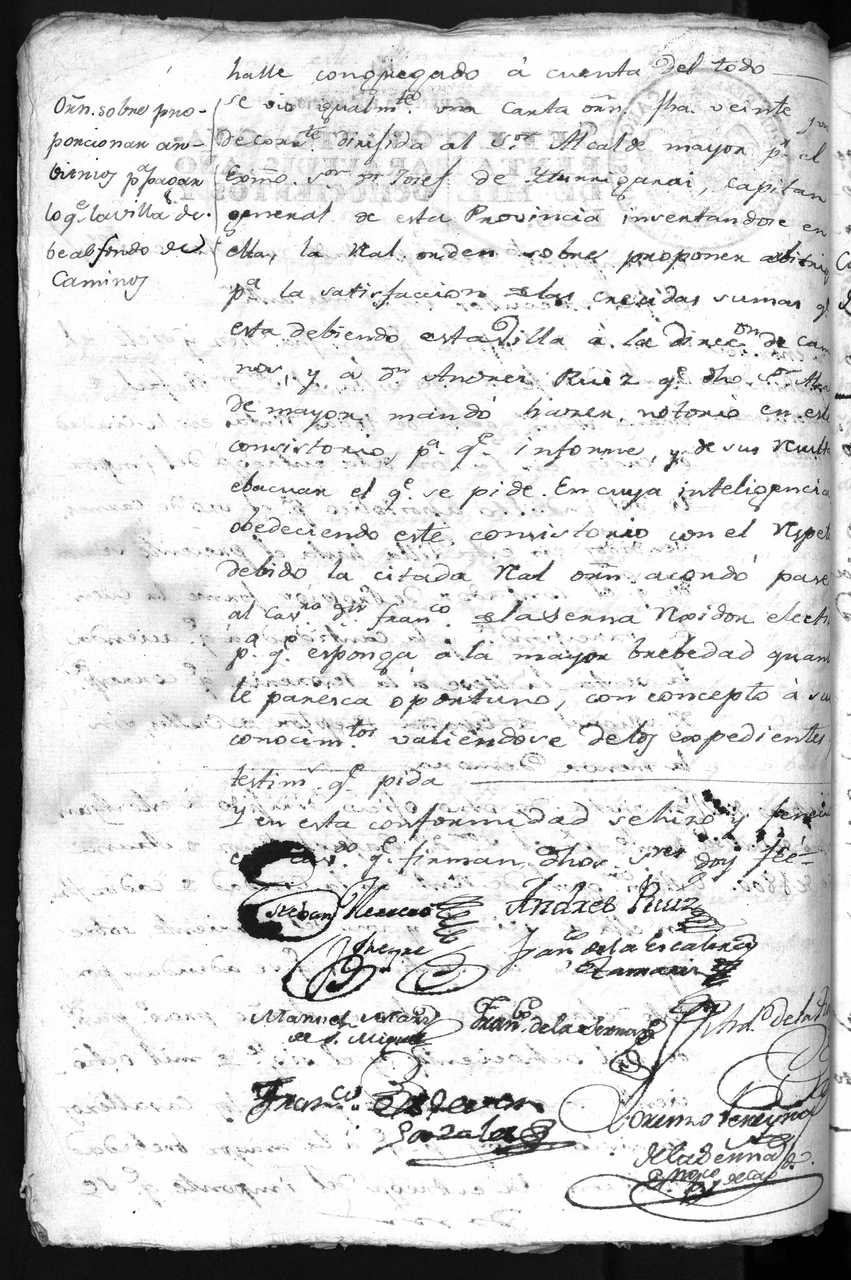 halle congregado à cuenta del todo
Orn. sobre pro-
porcionar ar-
vitrios pa. pagar
lo qe. la villa de-
be al fondo de
Caminos
se vio igualmte. una carta orn. fha. veinte
de corrte. dirijida al Sor. Alcalde mayor pr. el
Exmo. Sor. Dn. Josef de Yturrigarai, Capitan
general de esta Provincia insertandose en
ella, la Ral. orden sobre proponer arbitrios
pa. la satisfaccion de las crecidas sumas qe.
esta debiendo esta Villa à la direcon. de Cami
nos, y à Dn. Andres Ruiz qe. dho. Sor. Alcal
de mayor mandó hacer notorio en este
consistorio, pa. qe. informe, y de sus Resulta
ebacuar el qe. se pide. En cuya inteligencia
obedeciendo este consistorio con el Respeto
debido la citada Ral. orn. acordó pase
al Cavro. Dn. Franco. de la Serna Rexidor electi
pa. qe. esponga à la mayor brebedad quant
le paresca oportuno, con concepto à sus
conocimtos. valiendose de los expedientes,
testims. qe. pida
Y en esta conformidad se hizo y fenecio
qe. firman dhos. Sres. doy fee-
Esteban Herrero
Andres Ruiz
Freyre
Franco. de la Escalera
Zamanis
Manuel
de S. Miguel
Franco. de la Serna
de la
Franco. Estevan
Gonzalez
Lorenzo Ferreyro
de la Serna